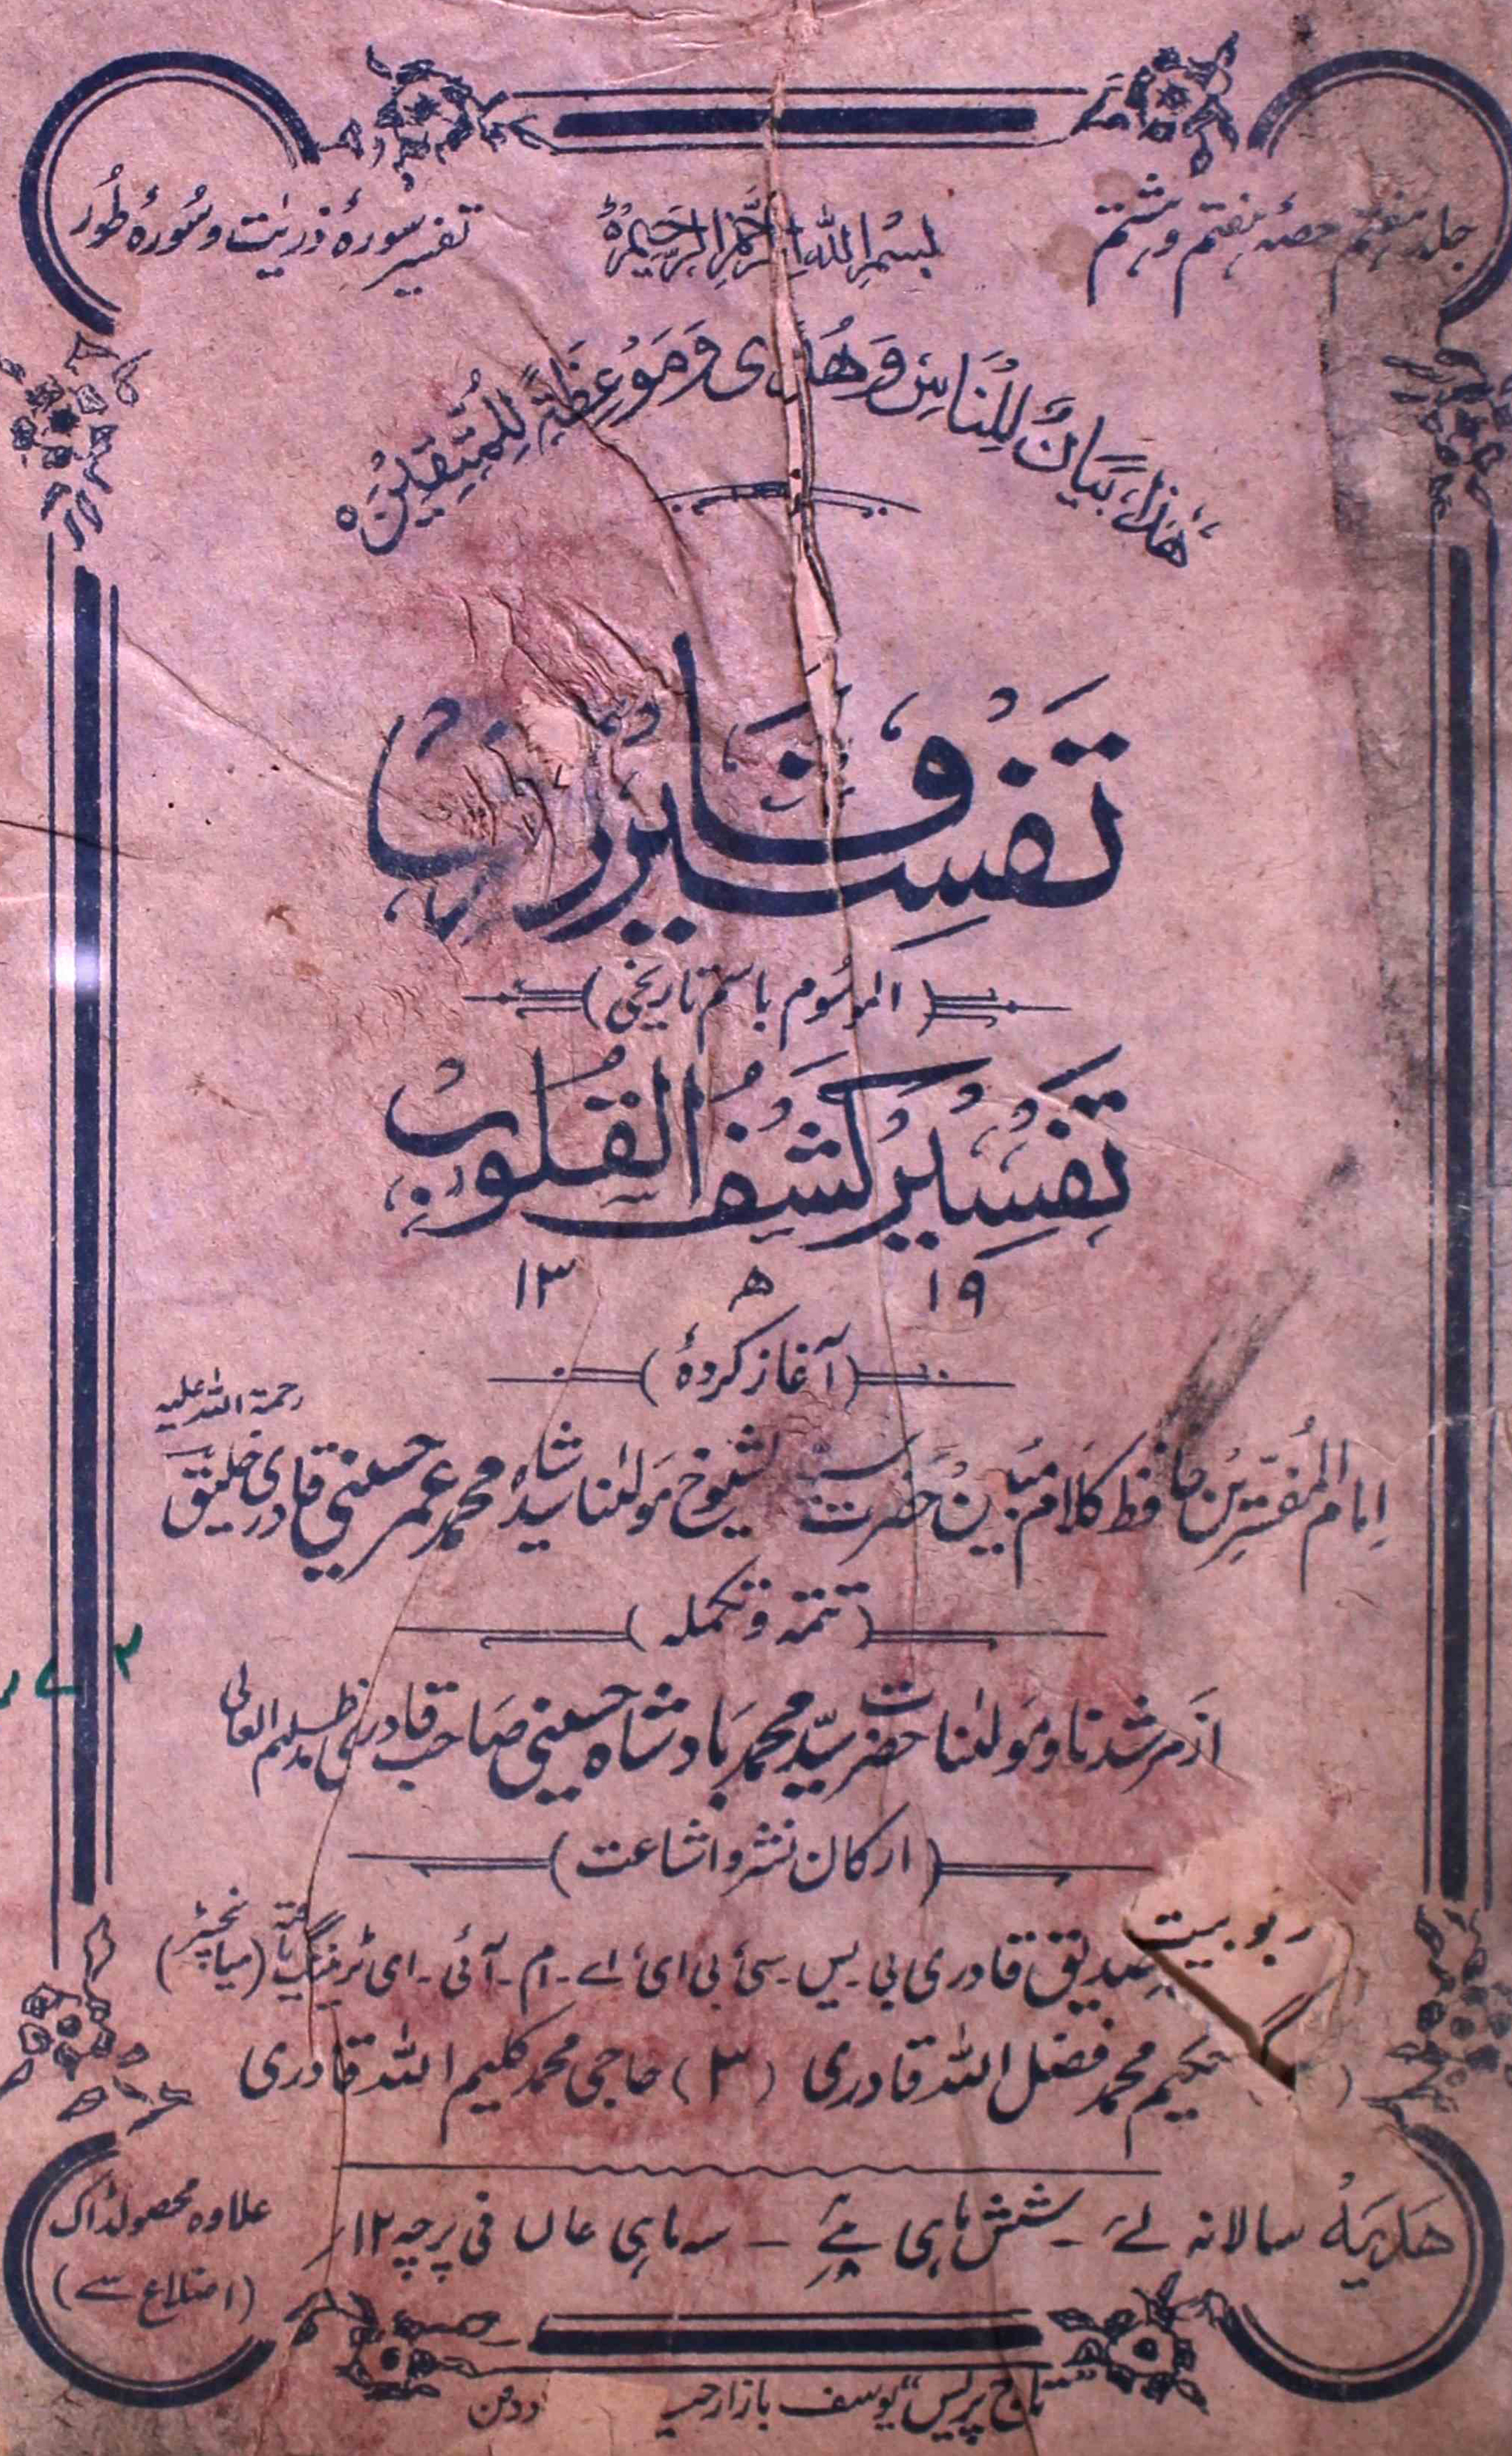 جلد ہفتم حصہ ہفتم و ہشتم
بسم اللہ الرحمن الرحیم
تفسیر سورۂ ذریٰت و سورۂ طور
ھٰذا بیان للناس و ھدی و موعظة للمتقین
تفسیر قادری
(الموسوم باسم تاریخی)
تفسیر کشف القلوب
۱۹ ھ ۱۳
(آغاز کردۂ)
امام المفسرین حافظ کلام مبین حضرت شیوخ مولٰنا سید شاہ محمد عمر حسینی قادری خلیق رحمۃ اللہ علیہ
(تتمہ و تکملہ)
از مرشدنا و مولٰنا حضرت سید محمد بادشاہ حسینی صاحب قادری مدظلہم العالی
(ارکان نشر و اشاعت)
ربوبیت صدیق قادری بی۔یس۔سی۔بی ای۔اے۔ام۔آئی۔ای ٹریننگ یافتہ (میانچسٹر)
حکیم محمد فضل اللہ قادری (۳) حاجی محمد کلیم اللہ قادری
ھدیہ سالانہ ۔ شش ماہی ۔ سہ ماہی فی پرچہ ۱۲؍
علاوہ محصول ڈاک
(اضلاع سے)
"تاج پریس" یوسف بازار حید ددکن